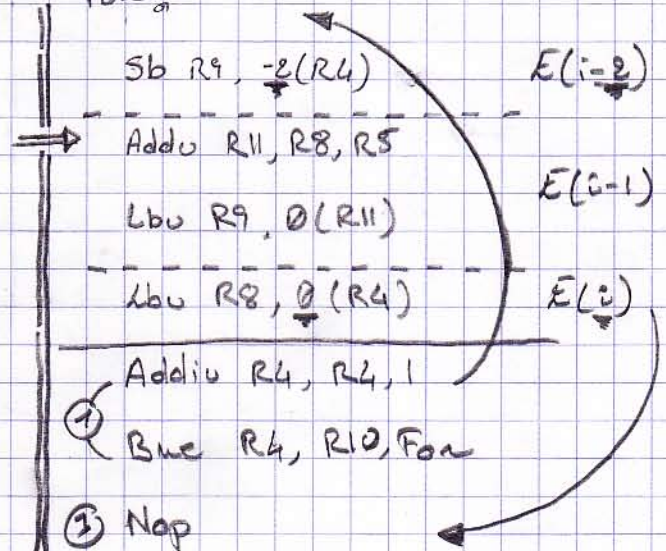 Sb R9, -2(R4) E(i-2)
Addu R11, R8, R5
E(i-1)
Lbu R9, 0(R11)
Lbu R8, 0(R4) E(i)
Addiu R4, R4, 1
1
Bne R4, R10, For
1 Nop